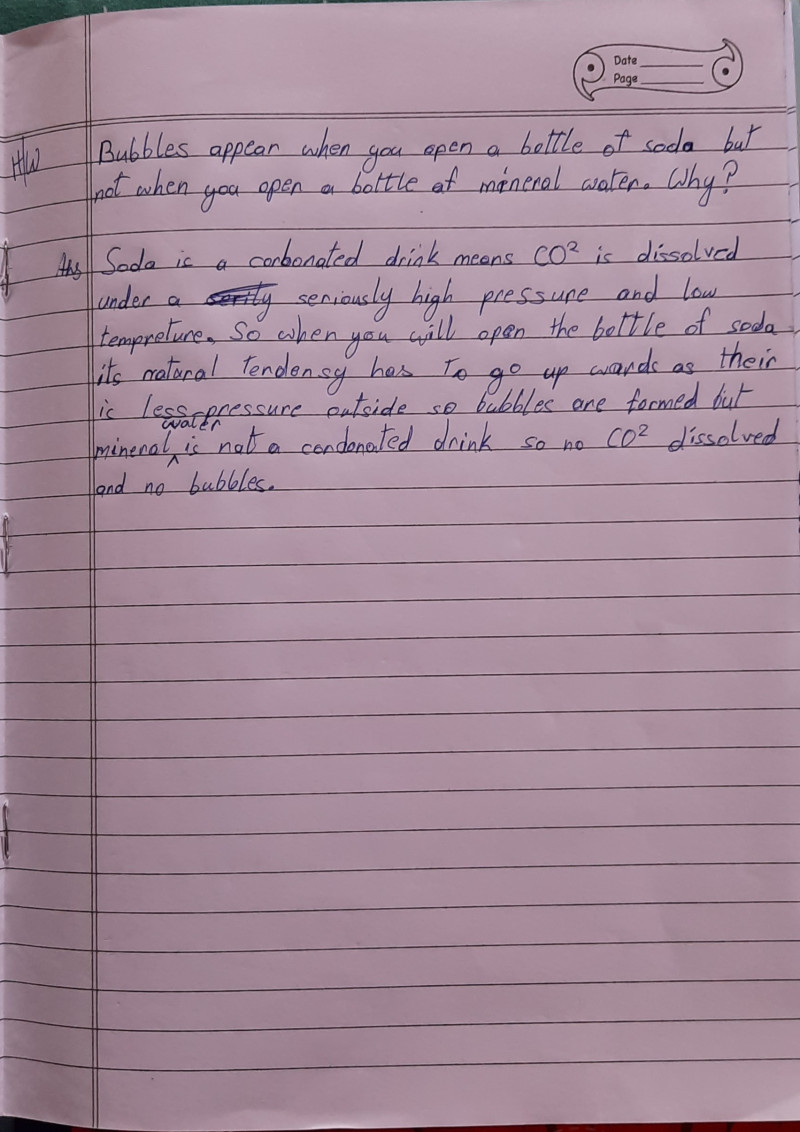 Date
Page
H/W Bubbles appear when you open a bottle of soda but
not when you open a bottle of mineral water. Why?
Ans Soda is a carbonated drink means CO² is dissolved
under a seriously high pressure and low
tempreture. So when you will open the bottle of soda
its natural tendensy has to go up wards as their
is less pressure outside so bubbles are formed but
mineral water is not a condonated drink so no CO² dissolved
and no bubbles.